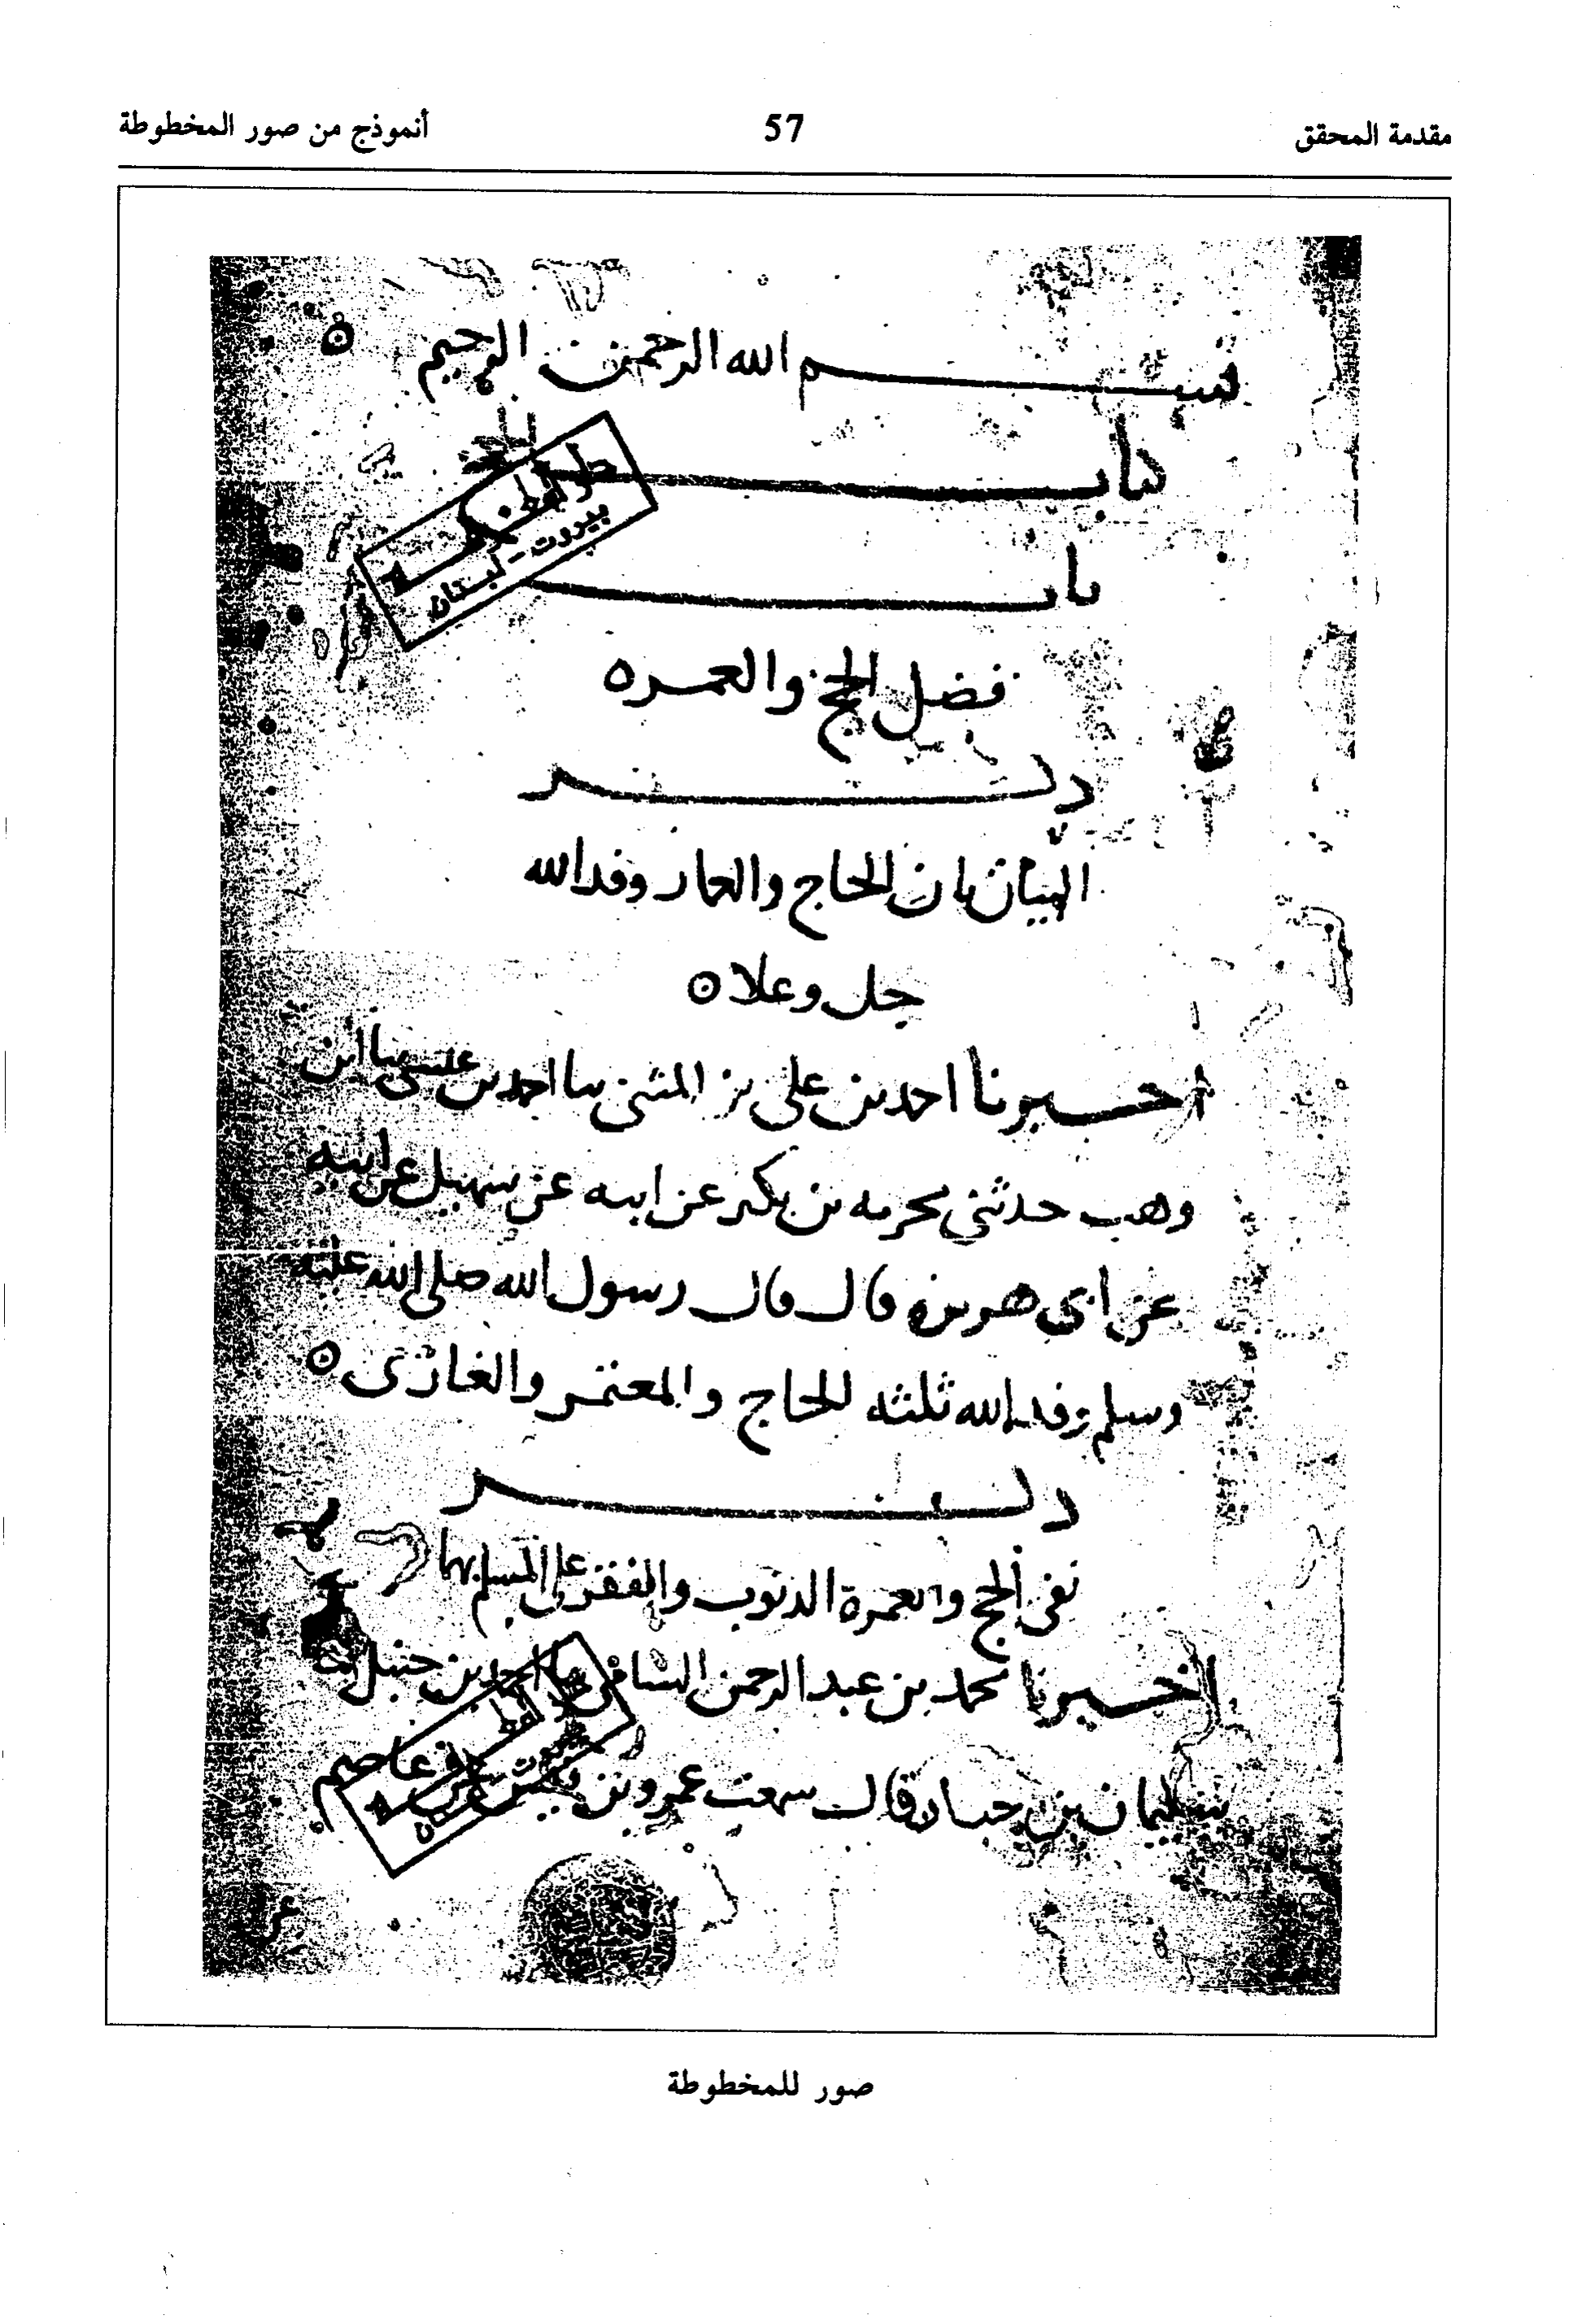 مقدمة المحقق
57
أنموذج من صور المخطوطة
بسم الله الرحمن الرحيم ه
كاب الحج
باب
فضل الحج والعمره
ذكر
البيان بان الحاج والعمار وفد الله
جل وعلا ه
اخبرنا احمد بن على بن المثنى ثنا احمد بن عيسى ثنا ابن
وهب حدثنى مخرمه بن بكير عن ابيه عن سهيل عن ابيه
عن ابى هريرة قال قال رسول الله صلى الله عليه
وسلم وفد الله ثلثه الحاج والمعتمر والغازى ه
ذكر
نفى الحج والعمرة الذنوب والفقر عن المسلم بهما
اخبرنا محمد بن عبد الرحمن السامى ثنا احمد بن حنبل ثنا
سليمان بن حيان قال سمعت عمرو بن قيس عن عاصم
بيروت - لبنان
صور للمخطوطة